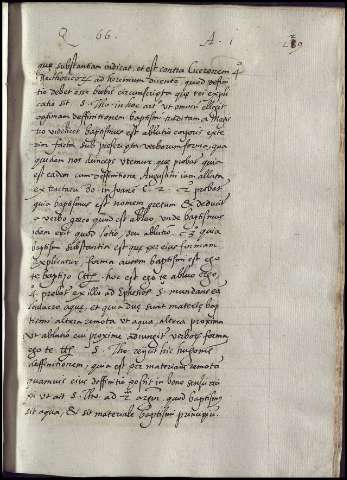 Q 66. A. 1
que substantiam indicat, et est contra Ciceronem 4.
Rethoricorum ad herenium dicente quod defini
tio debet esse brevis circumscripta que rei expli
cativa sit S. Tho. in hoc art. ut omnium elegit
optimam deffinitionem baptismi traditam a Magis
tro videlicet baptismus est ablutio corporis exte
rior facta sub prescripta verborum forma, qua
quidem nos deinceps utemur que probatur quia
est eadem cum deffinitione Augustini iam allata
ex tractatu 80 in Joannem 2. probatur
quia baptismus est nomen grecum et deducitur
a verbo greco quod est abluo unde baptismus
idem erit quod lotio, seu ablutio quia
baptismi substantia est que per eius formam
explicatur forma autem baptismi est ego
te baptizo hoc est ego te abluo ergo
4. probatur ex illo ad Ephesios 5 mundans ea
lavacro aque, et quia due sunt materie bap
tismi altera remota ut aqua, altera proxima
ut ablutio cui proxime adiungitur verborum forma
ego te S. Tho. reiicit hic hugonis
deffinitionem, quia est per materiam remotam
quamvis eius deffinitio possit in bono sensu exi
pi ut ait S. Tho. ad 2 argum. quod baptismus
sit aqua, id est sit materiale baptismi principium.